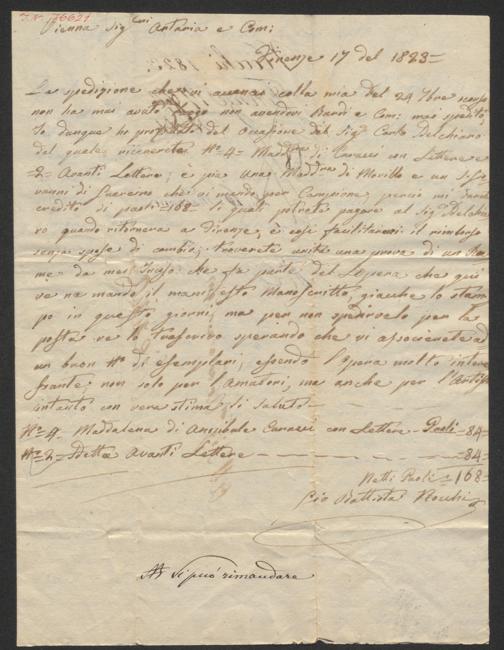 I.N. 76621
Vienna Sig.ri Artaria e Com:
Firenze 17 del 1823=
La spedizione che vi avena colla mia del 24 Xbre scorso
non ha mai avuto luogo non avendovi Bardi e Com: mai spedito,
Io dunque ho profittato del Ocasione del Sig.r Carlo Delchiaro
dal quale riceverete N° 4= Maddna di Caracci con Lettere e
=2= Avanti Lettere; e più una Maddna di Morillo e un S. Gio
vanni di Guercino che vi mando per Campione, perciò mi darete
credito di paoli =168= li quali potrete pagare al Sig.r Delchia
ro quando ritornera a Firenze, e così facilitarmi il rimborso
senza spese di cambio; troverete unita una prova di un Ra
me da me inciso che fa parte del Opera che qui
ve ne mando il manifesto Manoscritto, giacche lo stam
po in questi giorni ma per non spedirvelo per la
posta ve lo trascrivo sperando che vi associerete ad
un buon N° di esemplari, essendo l'Opera molto inter
essante non solo per l'Amatori, ma anche per l'Artisti
intanto con vera stima vi saluto
N° 4- Maddalena di Annibale Caracci con Lettere - Paoli =84=
N° 2= Detta Avanti Lettere =84=
Netti Paoli =168=
Gio Battista
Si può rimandare